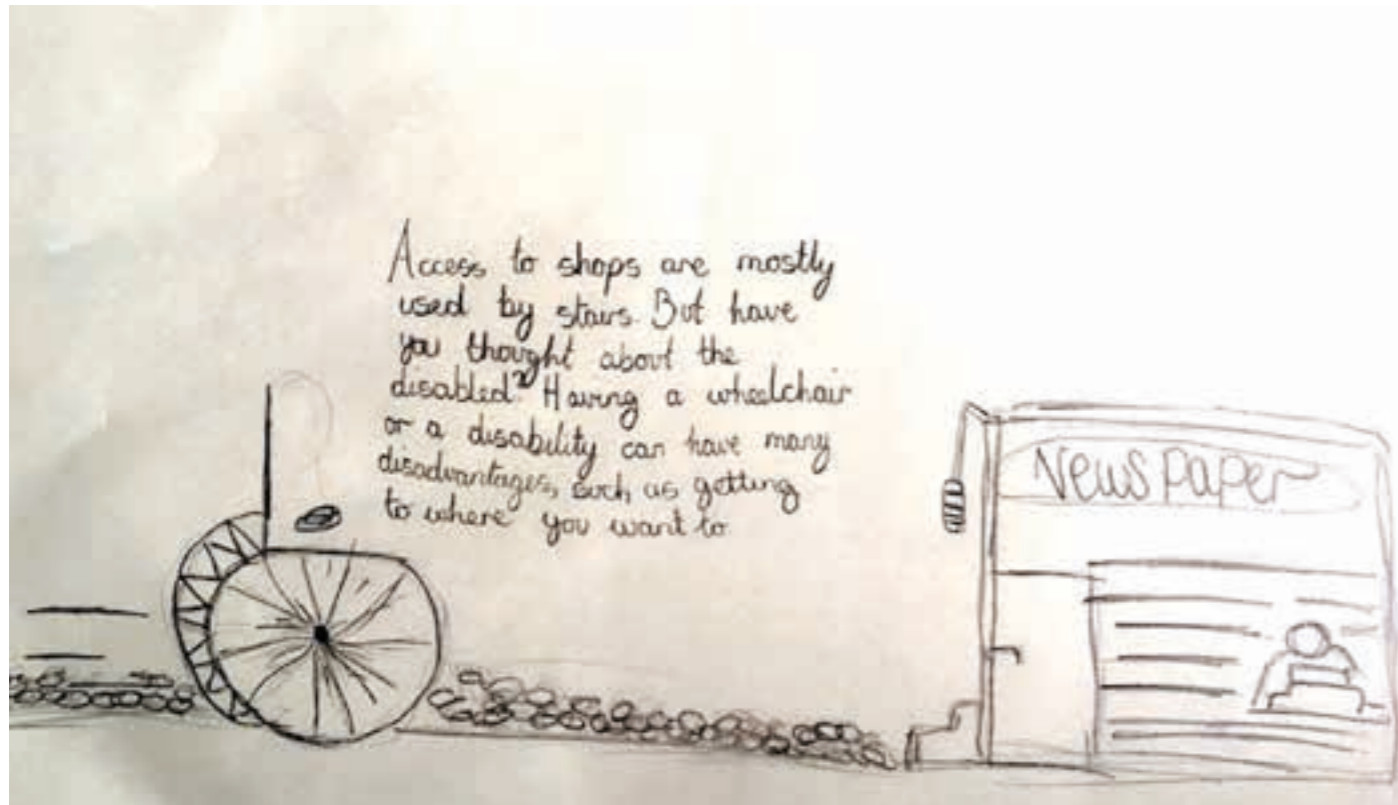 Access to shops are mostly
used by stairs. But have
you thought about the
disabled? Having a wheelchair
or a disability can have many
disadvantages, such as getting
to where you want to
News paper